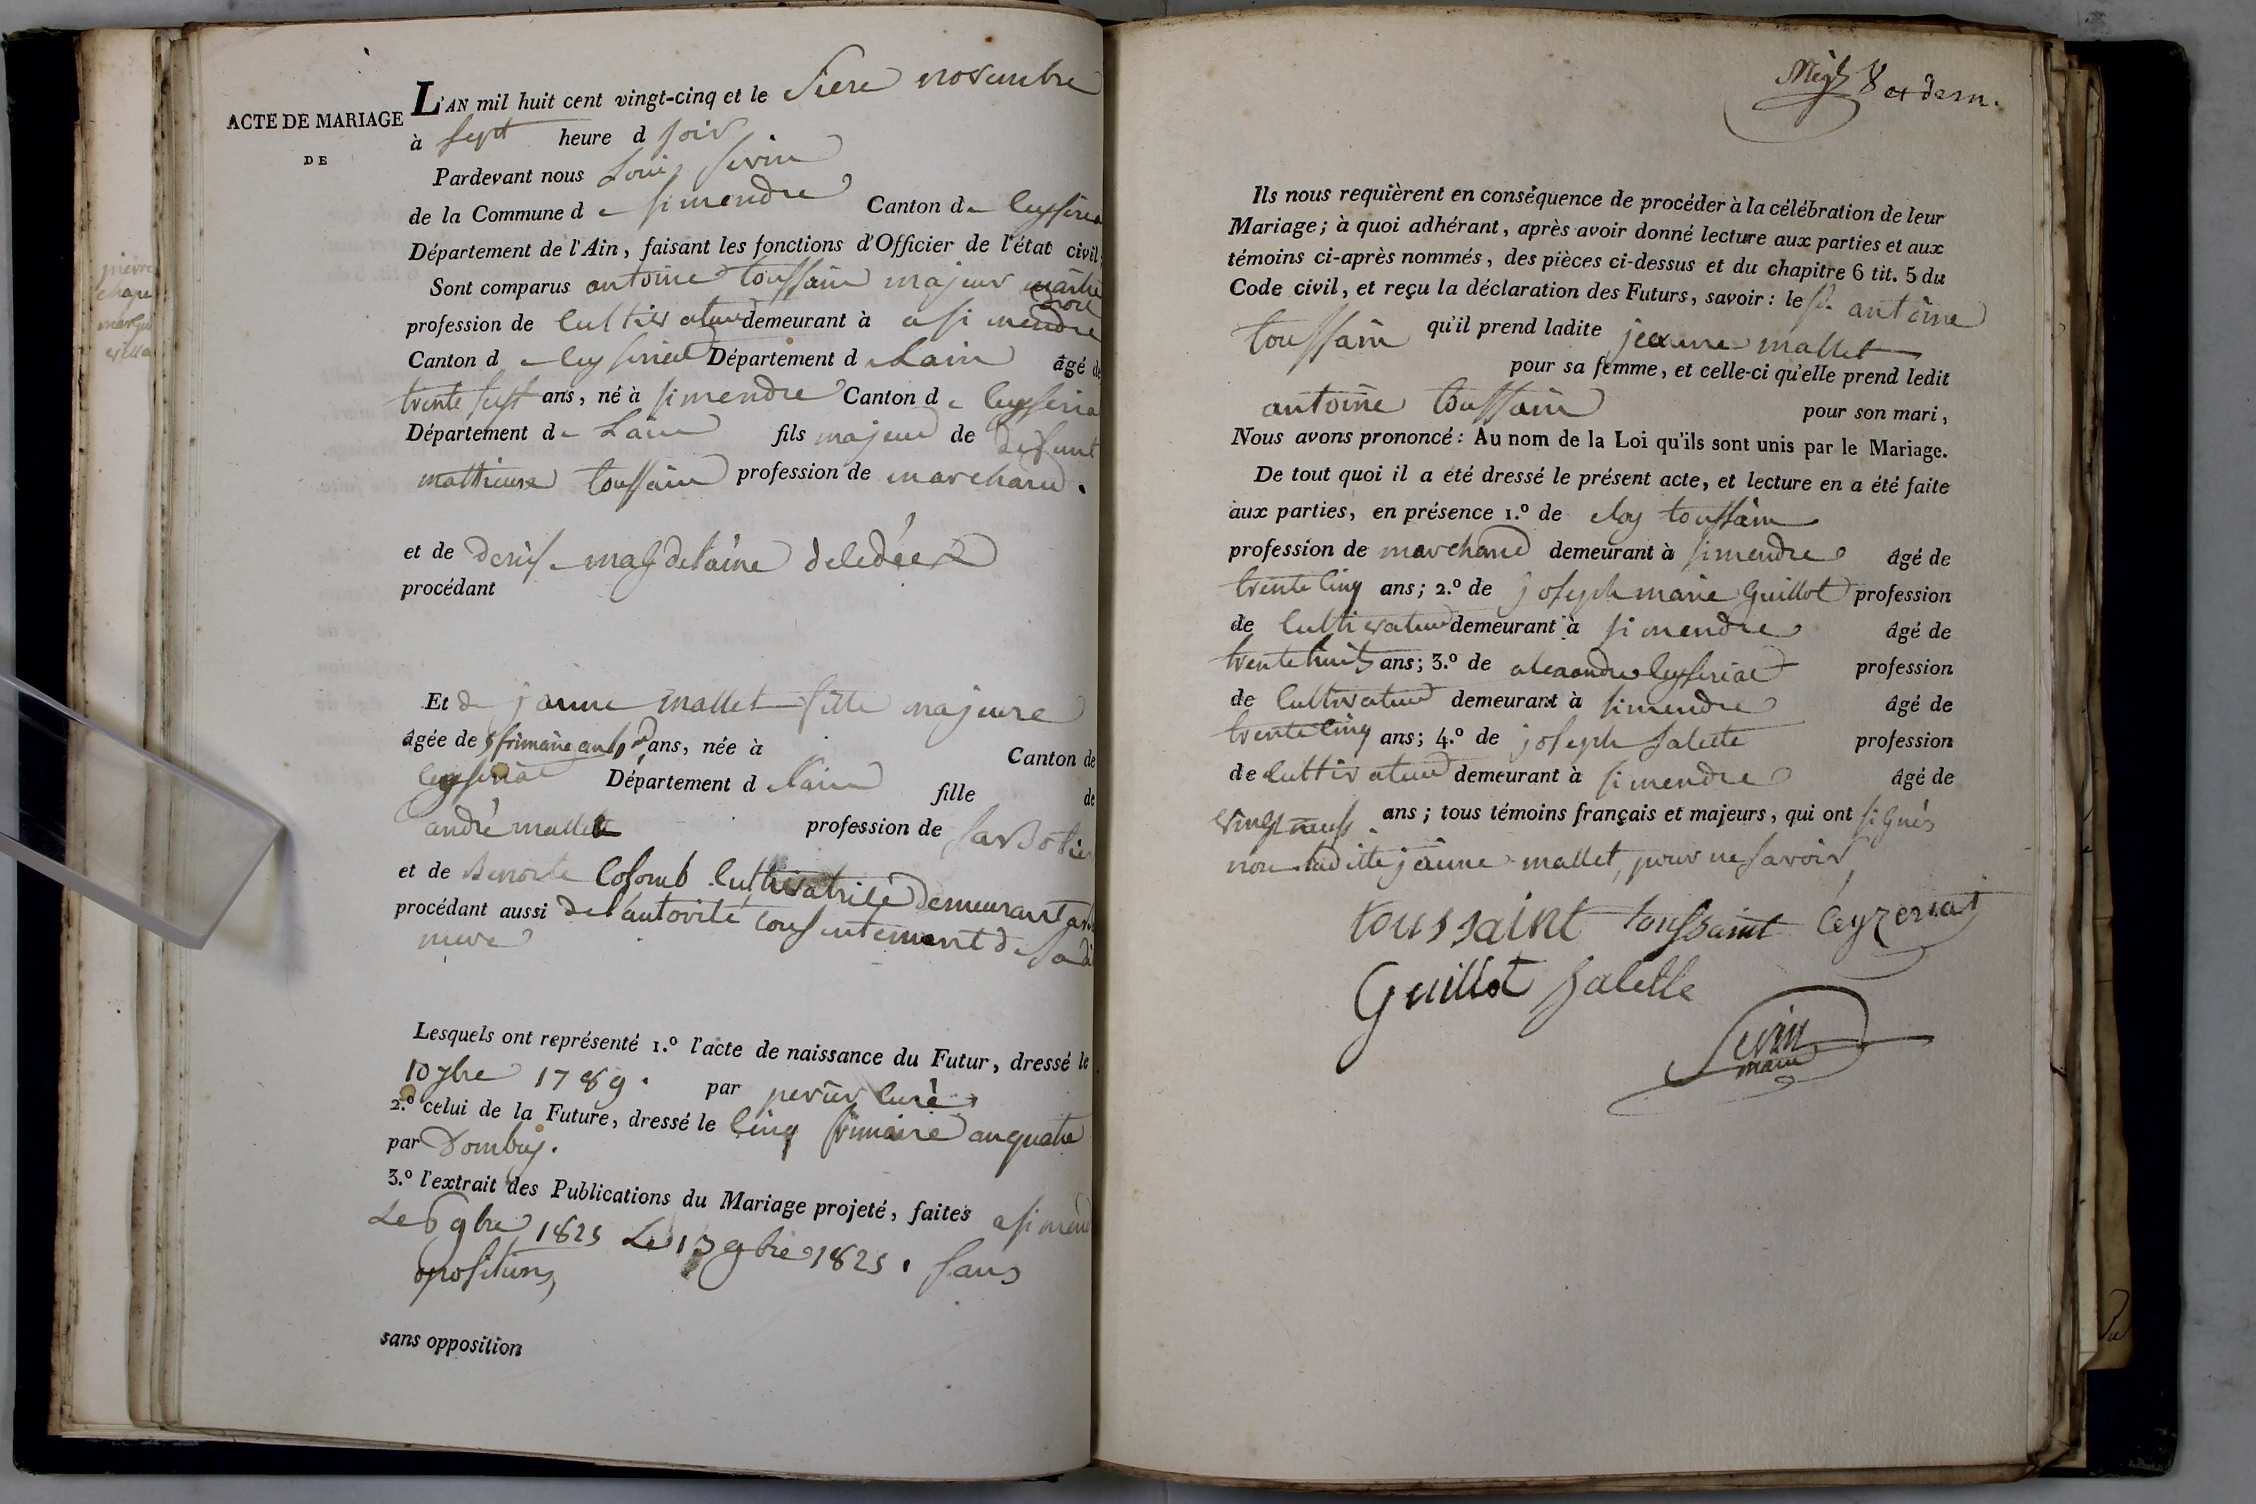 pierre
chane
ACTE DE MARIAGE
DE
L'AN mil huit cent vingt-cinq et le novembre
à Sept heure d Soir
Pardevant nous Louis sevin
de la Commune d e simendre Canton d e Ceyseria
Département de l'Ain, faisant les fonctions d'Officier de l'état civil.
Sont comparus antoine toussain majeur
profession de Cultivateur demeurant à a simendre
Canton d e Ceyseriat Département d e Lain âgé de
trente sept ans, né à simendre Canton d e Ceyseria
Département d e Lain fils majeur de defunt
mathieure toussain profession de marchand.
et de denise magdelaine
procédant
Et de jeanne mallet fille majeure
âgée de 5 frimaire an 4 ans, née à Canton de
Ceyseriat Département d e Lain fille de
andré mallet profession de Sabotier
et de Benoite Colomb Cultivatrice demeurant
procédant aussi de l'autorité consentement de sa d
mere
Lesquels ont représenté 1.º l'acte de naissance du Futur, dressé le
10 7bre 1789. par perier curé
2.º celui de la Future, dressé le Cinq frimaire an quatre
par Dombey.
3.º l'extrait des Publications du Mariage projeté, faites a simend
Le 6 9bre 1825 Le 13 9bre 1825. Sans
opositions
sans opposition
8 et dern.
Ils nous requièrent en conséquence de procéder à la célébration de leur
Mariage; à quoi adhérant, après avoir donné lecture aux parties et aux
témoins ci-après nommés, des pièces ci-dessus et du chapitre 6 tit. 5 du
Code civil, et reçu la déclaration des Futurs, savoir: le sr. antoine
toussain qu'il prend ladite jeanne mallet
pour sa femme, et celle-ci qu'elle prend ledit
antoine toussain pour son mari,
Nous avons prononcé: Au nom de la Loi qu'ils sont unis par le Mariage.
De tout quoi il a été dressé le présent acte, et lecture en a été faite
aux parties, en présence 1.º de eloy toussain
profession de marchand demeurant à simendre âgé de
trente Cinq ans; 2.º de joseph marie Guillot profession
de Cultivateur demeurant à simendre âgé de
trente huit ans; 3.º de alexandre Ceyseriat profession
de Cultivateur demeurant à simendre âgé de
trente Cinq ans; 4.º de joseph Salette profession
de Cultivateur demeurant à simendre âgé de
vingt neuf ans; tous témoins français et majeurs, qui ont signés
non laditte jeanne mallet, pour ne savoir
toussaint toussaint Ceyzeriat
Guillot Salette
Sevin
maire